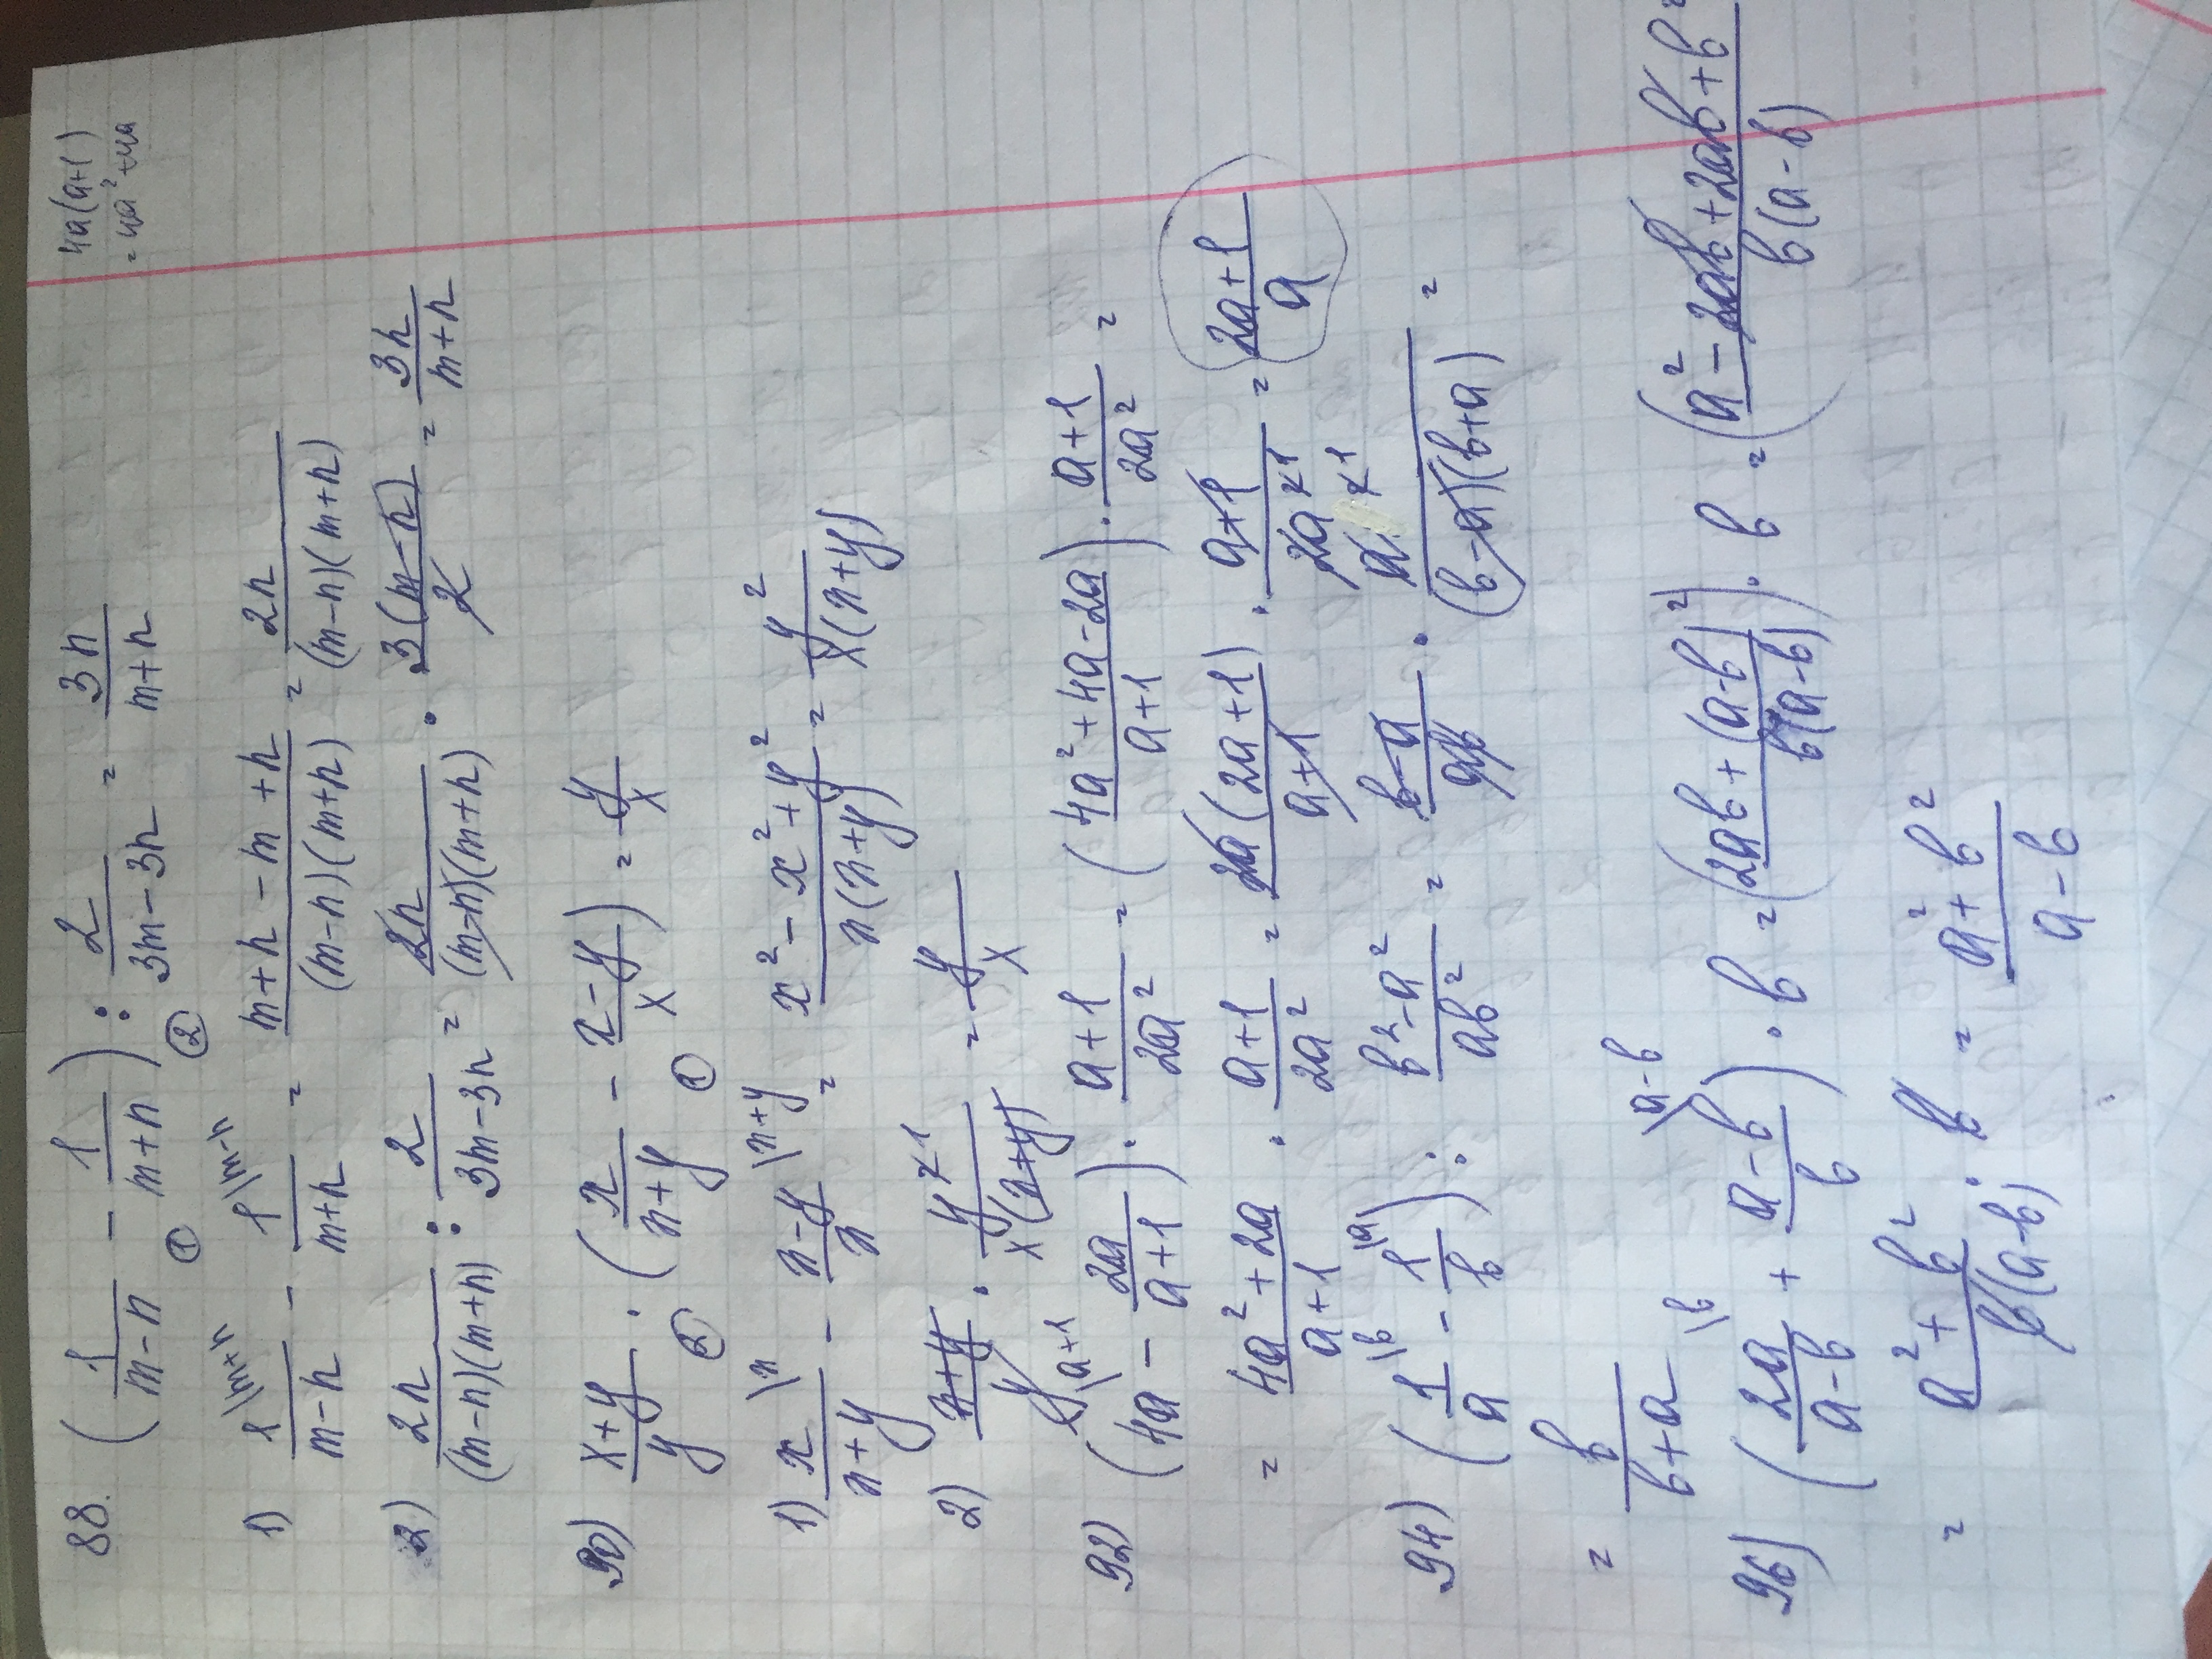 4a(a+1)
= 4a² + 4a
88. (1/(m-n) - 1/(m+n)) : 2/(3m-3n) = 3n/(m+n)
① ②
1) 1\m+n/(m-n) - 1\m-n/(m+n) = (m+n-m+n)/((m-n)(m+n)) = 2n/((m-n)(m+n))
2) 2n/((m-n)(m+n)) : 2/(3m-3n) = 2n/((m-n)(m+n)) · 3(m-n)/2 = 3n/(m+n)
90) (x+y)/y · (x/(x+y) - (x-y)/x) = y/x
② ①
1) x\x/(x+y) - (x-y)\x+y/x = (x²-x²+y²)/(x(x+y)) = y²/(x(x+y))
2) (x+y)/y · y²⁻¹/(x(x+y)) = y/x
92) (4a\a+1 - 2a/(a+1)) · (a+1)/2a² = ((4a²+4a-2a)/(a+1)) · (a+1)/2a² =
= (4a²+2a)/(a+1) · (a+1)/2a² = 2a(2a+1)/(a+1) · (a+1)/2a²⁻¹ = (2a+1)/a
94) (1\b/a - 1\a/b) : (b²-a²)/ab² = (b-a)/ab · ab²⁻¹/((b-a)(b+a)) =
= b/(b+a)
96) (2a\b/(a-b) + (a-b)\a-b/b) · b = ((2ab+(a-b)²)/(b(a-b))) · b = (a²-2ab+2ab+b²)/(b(a-b))
= (a²+b²)/(b(a-b)) · b = (a²+b²)/(a-b)